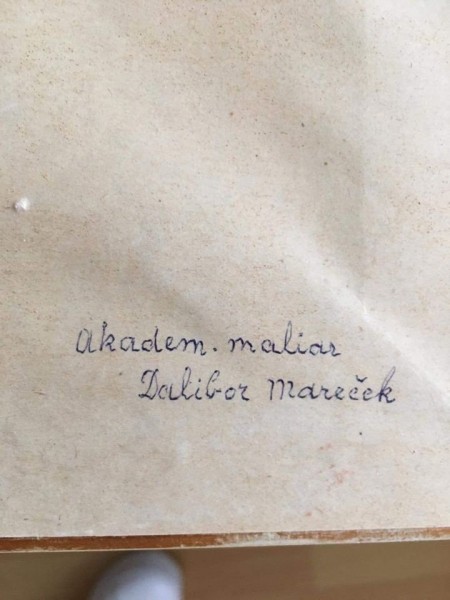 Akadem. maliar
Dalibor Mareček